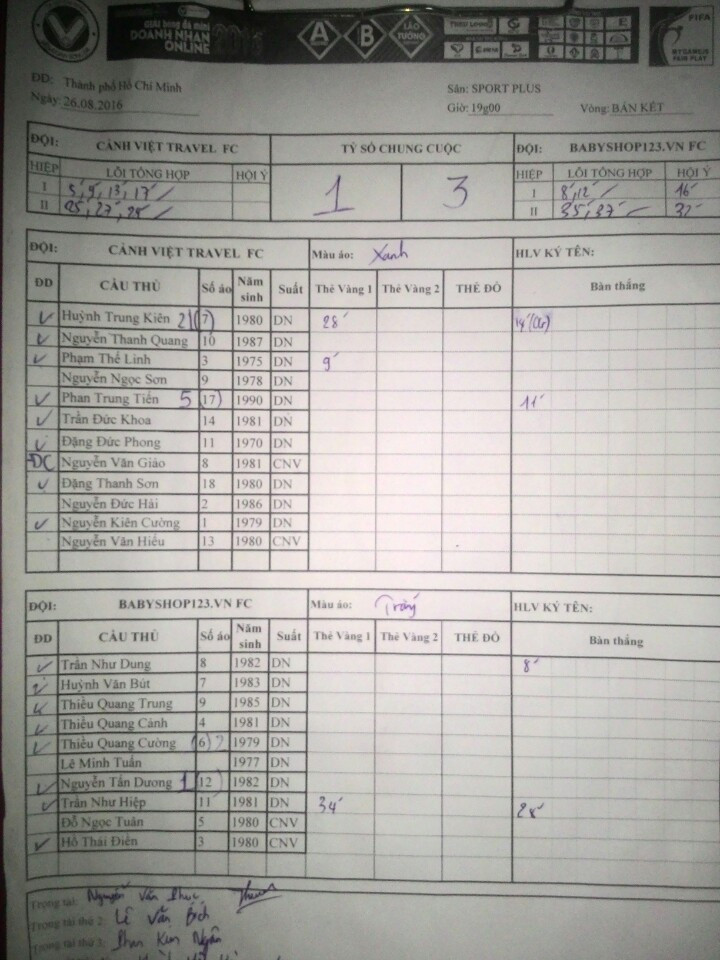 GIẢI BÓNG ĐÁ MINI
DOANH NHÂN
ONLINE 2016
A B LÃO TƯỚNG
FIFA
MY GAME IS
FAIR PLAY
ĐĐ: Thành phố Hồ Chí Minh Sân: SPORT PLUS
Ngày: 26.08.2016 Giờ: 19g00 Vòng: BÁN KẾT
ĐỘI: CẢNH VIỆT TRAVEL FC TỶ SỐ CHUNG CUỘC ĐỘI: BABYSHOP123.VN FC
HIỆP LỖI TỔNG HỢP HỘI Ý 1 3 HIỆP LỖI TỔNG HỢP HỘI Ý
I 5', 9', 13', 17' I 8', 12' 16'
II 25', 27', 29' II 35', 37' 32'
ĐỘI: CẢNH VIỆT TRAVEL FC Màu áo: Xanh HLV KÝ TÊN:
ĐD CẦU THỦ Số áo Năm sinh Suất Thẻ Vàng 1 Thẻ Vàng 2 THẺ ĐỎ Bàn thắng
Huỳnh Trung Kiên 21 (7) 1980 DN 28' 14'
Nguyễn Thanh Quang 10 1987 DN
Phạm Thế Linh 3 1975 DN 9'
Nguyễn Ngọc Sơn 9 1978 DN
Phan Trung Tiến 5 (17) 1990 DN 11'
Trần Đức Khoa 14 1981 DN
Đặng Đức Phong 11 1970 DN
ĐC Nguyễn Văn Giáo 8 1981 CNV
Đặng Thanh Sơn 18 1980 DN
Nguyễn Đức Hải 2 1986 DN
Nguyễn Kiên Cường 1 1979 DN
Nguyễn Văn Hiếu 13 1980 CNV
ĐỘI: BABYSHOP123.VN FC Màu áo: Trắng HLV KÝ TÊN:
ĐD CẦU THỦ Số áo Năm sinh Suất Thẻ Vàng 1 Thẻ Vàng 2 THẺ ĐỎ Bàn thắng
Trần Như Dung 8 1982 DN 8'
Huỳnh Văn Bút 7 1983 DN
Thiều Quang Trung 9 1985 DN
Thiều Quang Cảnh 4 1981 DN
Thiều Quang Cường (6) 1979 DN
Lê Minh Tuấn 1977 DN
Nguyễn Tấn Dương 1 (12) 1982 DN
Trần Như Hiệp 11 1981 DN 34' 28'
Đỗ Ngọc Tuân 5 1980 CNV
Hồ Thái Điền 3 1980 CNV
Trọng tài: Nguyễn Văn Phúc
Trọng tài thứ 2: Lê Văn Bích
Trọng tài thứ 3: Phan Kim Ngân